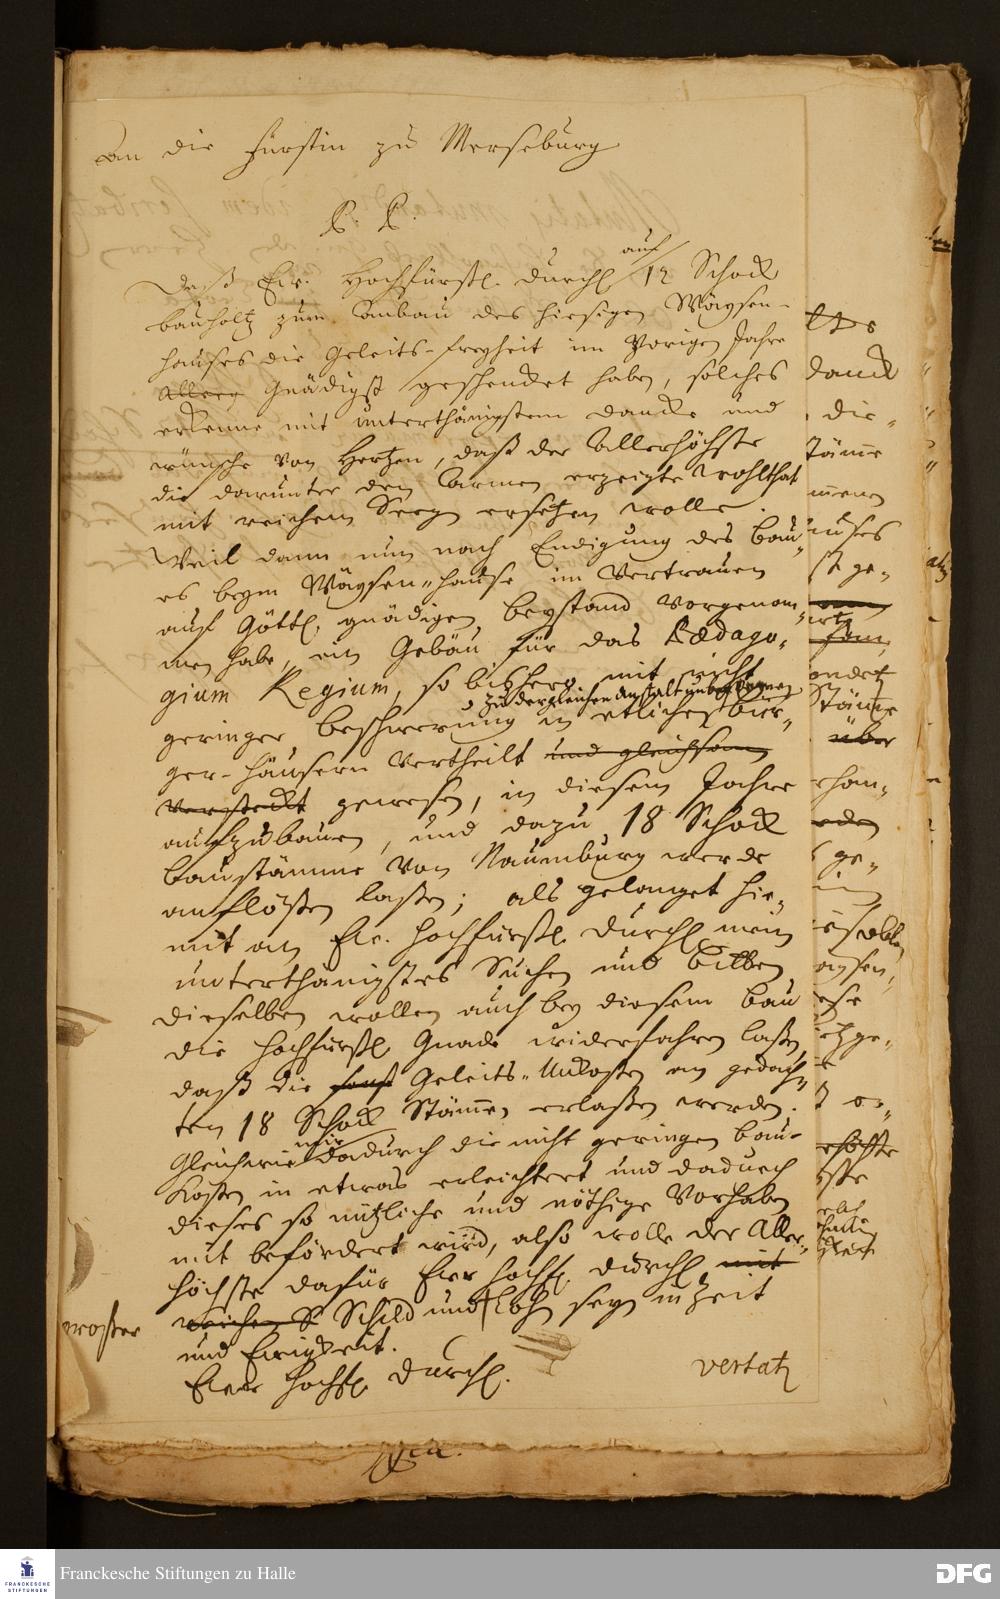 An die Fürstin zu Merseburg
P. P.
auf
Daß Ew. Hochfürstl. Durchl. 12 Schock
bauholtz zum Anbau des hiesigen Wäysen-
hauses die Geleits-freyheit im Vorigen Jahre
Allerg Gnädigst geschencket haben, solches
erkenne mit unterthänigstem Dancke und
wünsche von Hertzen, daß der Allerhöchste
die darunter den Armen erzeigte Wohlthat
mit reichem Seegen ersetzen wolle.
Weil dann nun nach Endigung des Bau-
es beym Wäysen-hause im Vertrauen
auf Göttl. gnädigen beystand vorgenom-
men habe, ein Gebäu für das Pædago-
gium Regium, so bishero mit nicht
zu dergleichen Anstalt unbequemen
geringer beschwerung in etliche Bür-
ger-Häusern vertheilt und gleichsam
versteckt gewesen, in diesem Jahre
aufzubauen, und dazu 18 Schock
baustämme von Naumburg werde
anflößen laßen; als gelanget hie-
mit an Ew. Hochfürstl. Durchl. mein
unterthänigstes Suchen und bitten
dieselben wollen auch bey diesem bau
die Hochfürstl. Gnade widerfahren laßen,
daß die sonst Geleits-Unkosten an gedach-
ten 18 Schock Stämmen erlaßen werden.
Gleichwie dadurch die nicht geringen bau-
Kosten in etwas erleichtert und dadurch
dieses so nützliche und nöthige Vorhaben
mit befördert wird, also wolle der Aller-
höchste dafür Ewr Hochfl. Durchl. mit
reichem S Schild und Lohn seyn in Zeit
und Ewigkeit.
Ewr Hochfl. Durchl.
vertatz
danck
die
Stämme
über
Franckesche Stiftungen zu Halle
FRANCKESCHE
STIFTUNGEN
DFG